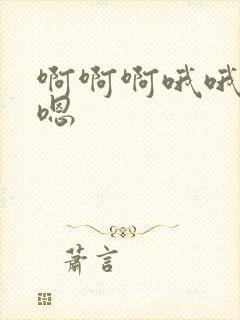 啊啊啊哦哦
嗯
萧言